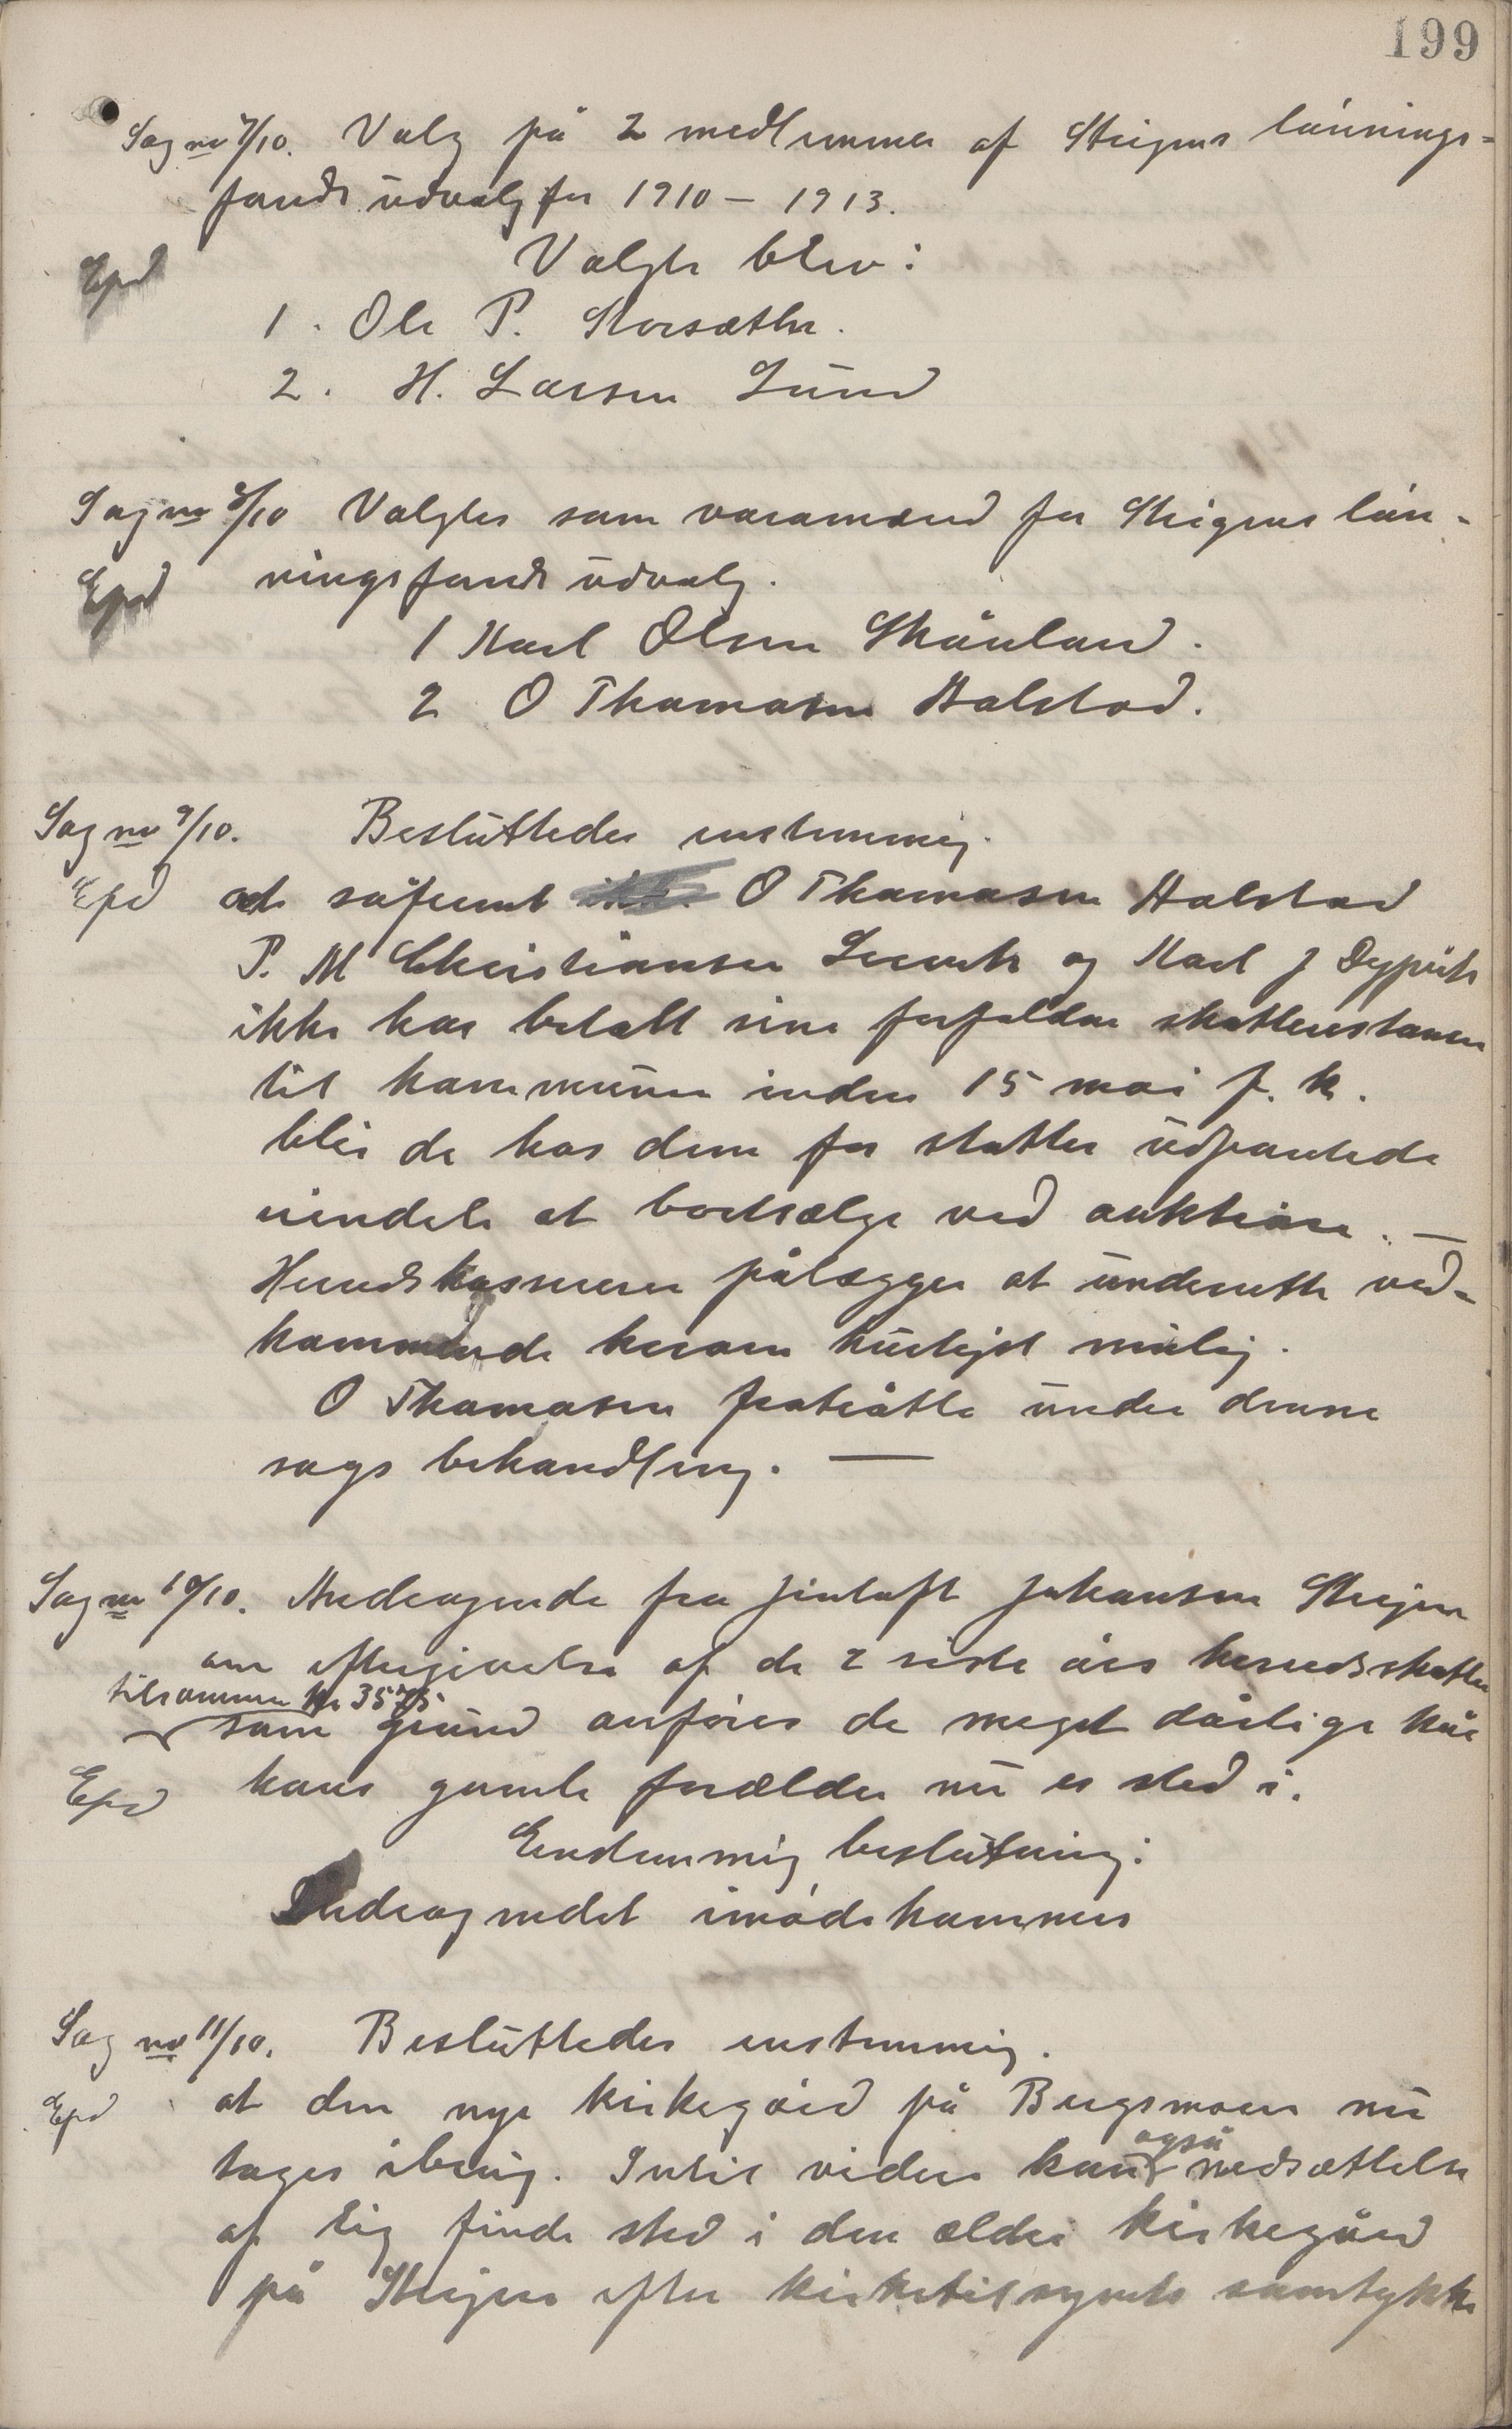 199
Sag no 7/10. Valg på 2 medlemmer af Steigens lånings-
fonds udvalg for 1910 – 1913.
Valgte blev:
Epd
1. Ole P. Storsæther.
2. H. Larsen Lund
Sag no 8/10 Valgtes som varamænd for Steigens lån-
Epd ningsfonds udvalg.
1 Karl Olsen Skånland.
2 O Thomasen Halstad.
Sag no 9/10. Besluttedes enstemmig.
Epd at såfremt O Thomasen Halstad
P. M Christiansen og Karl J Dypvik
ikke har betalt sine forfaldne skatterestanser
til kommunen inden 15 mai f. k.
blir de hos dem for skatter udpantede
eiendele at bortsælge ved auktion. —
Herredskasserer pålægges at underrette ved-
kommende herom hurtigst mulig.
O Thomasen fratrådte under denne
sags behandling. —
Sag no 10/10. Andragende fra Johansen Steigen
om eftergivelse af de 2 siste års herredsskatter
tilsammen kr 35 75
som grund anføres de meget dårlige kår
Epd hans gamle forælder nu er sted i.
Enstemmig beslutning:
Andragendet imødekommes
Sag no 11/10. Besluttedes enstemmig.
Epd at den nye kirkegård på Bergsmoen nu
også
tages ibrug. Intil videre kan nedsættelse
af lig finde sted i den ældre kirkegård
på Steigen efter kirketilsynets samtykke